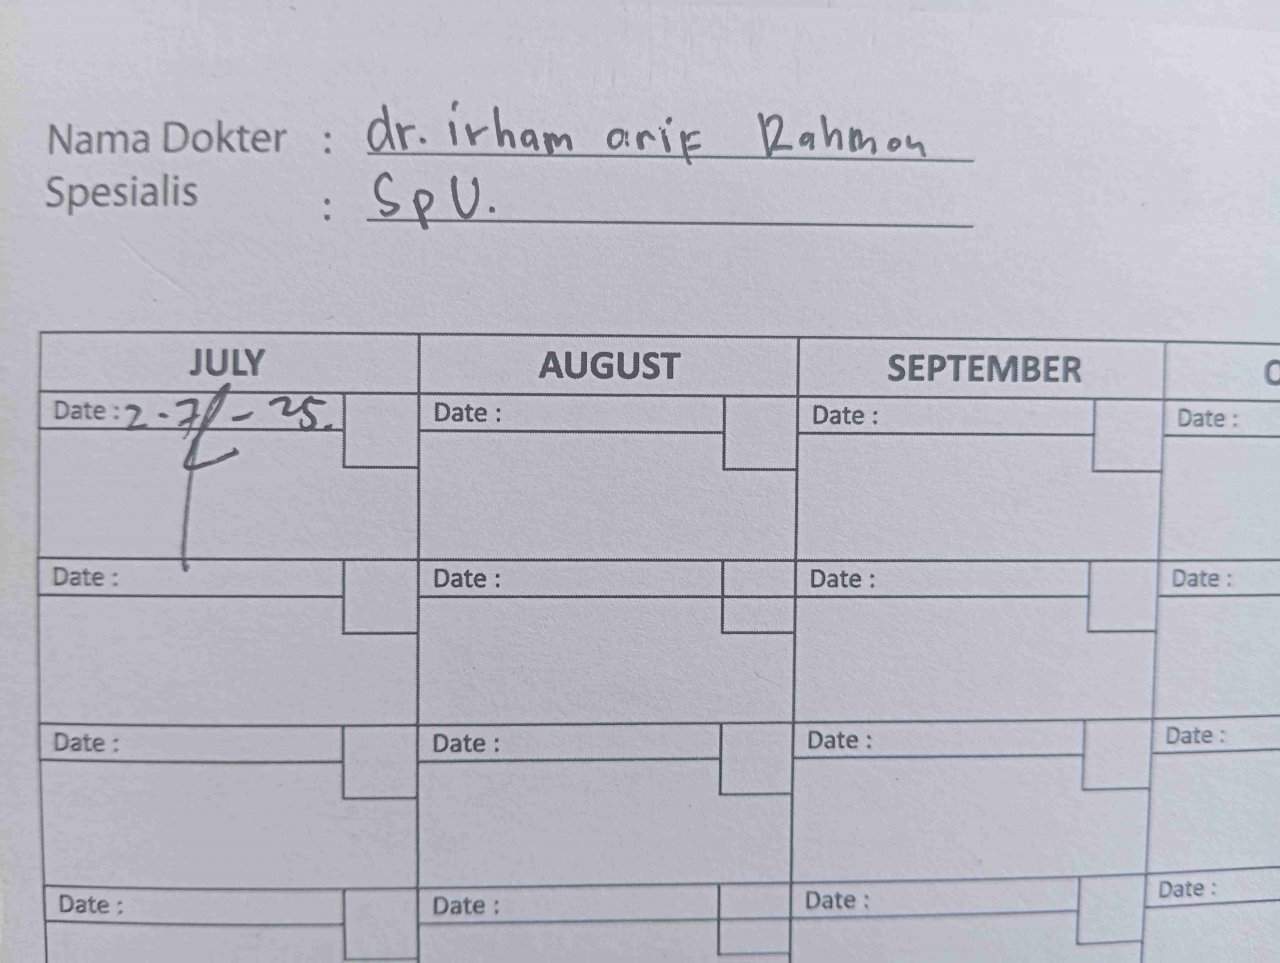 Nama Dokter : dr. irham arif Rahman
Spesialis : SpU.
JULY AUGUST SEPTEMBER
Date : 2-7-25. Date : Date : Date :
Date : Date : Date : Date :
Date : Date : Date : Date :
Date : Date : Date : Date :